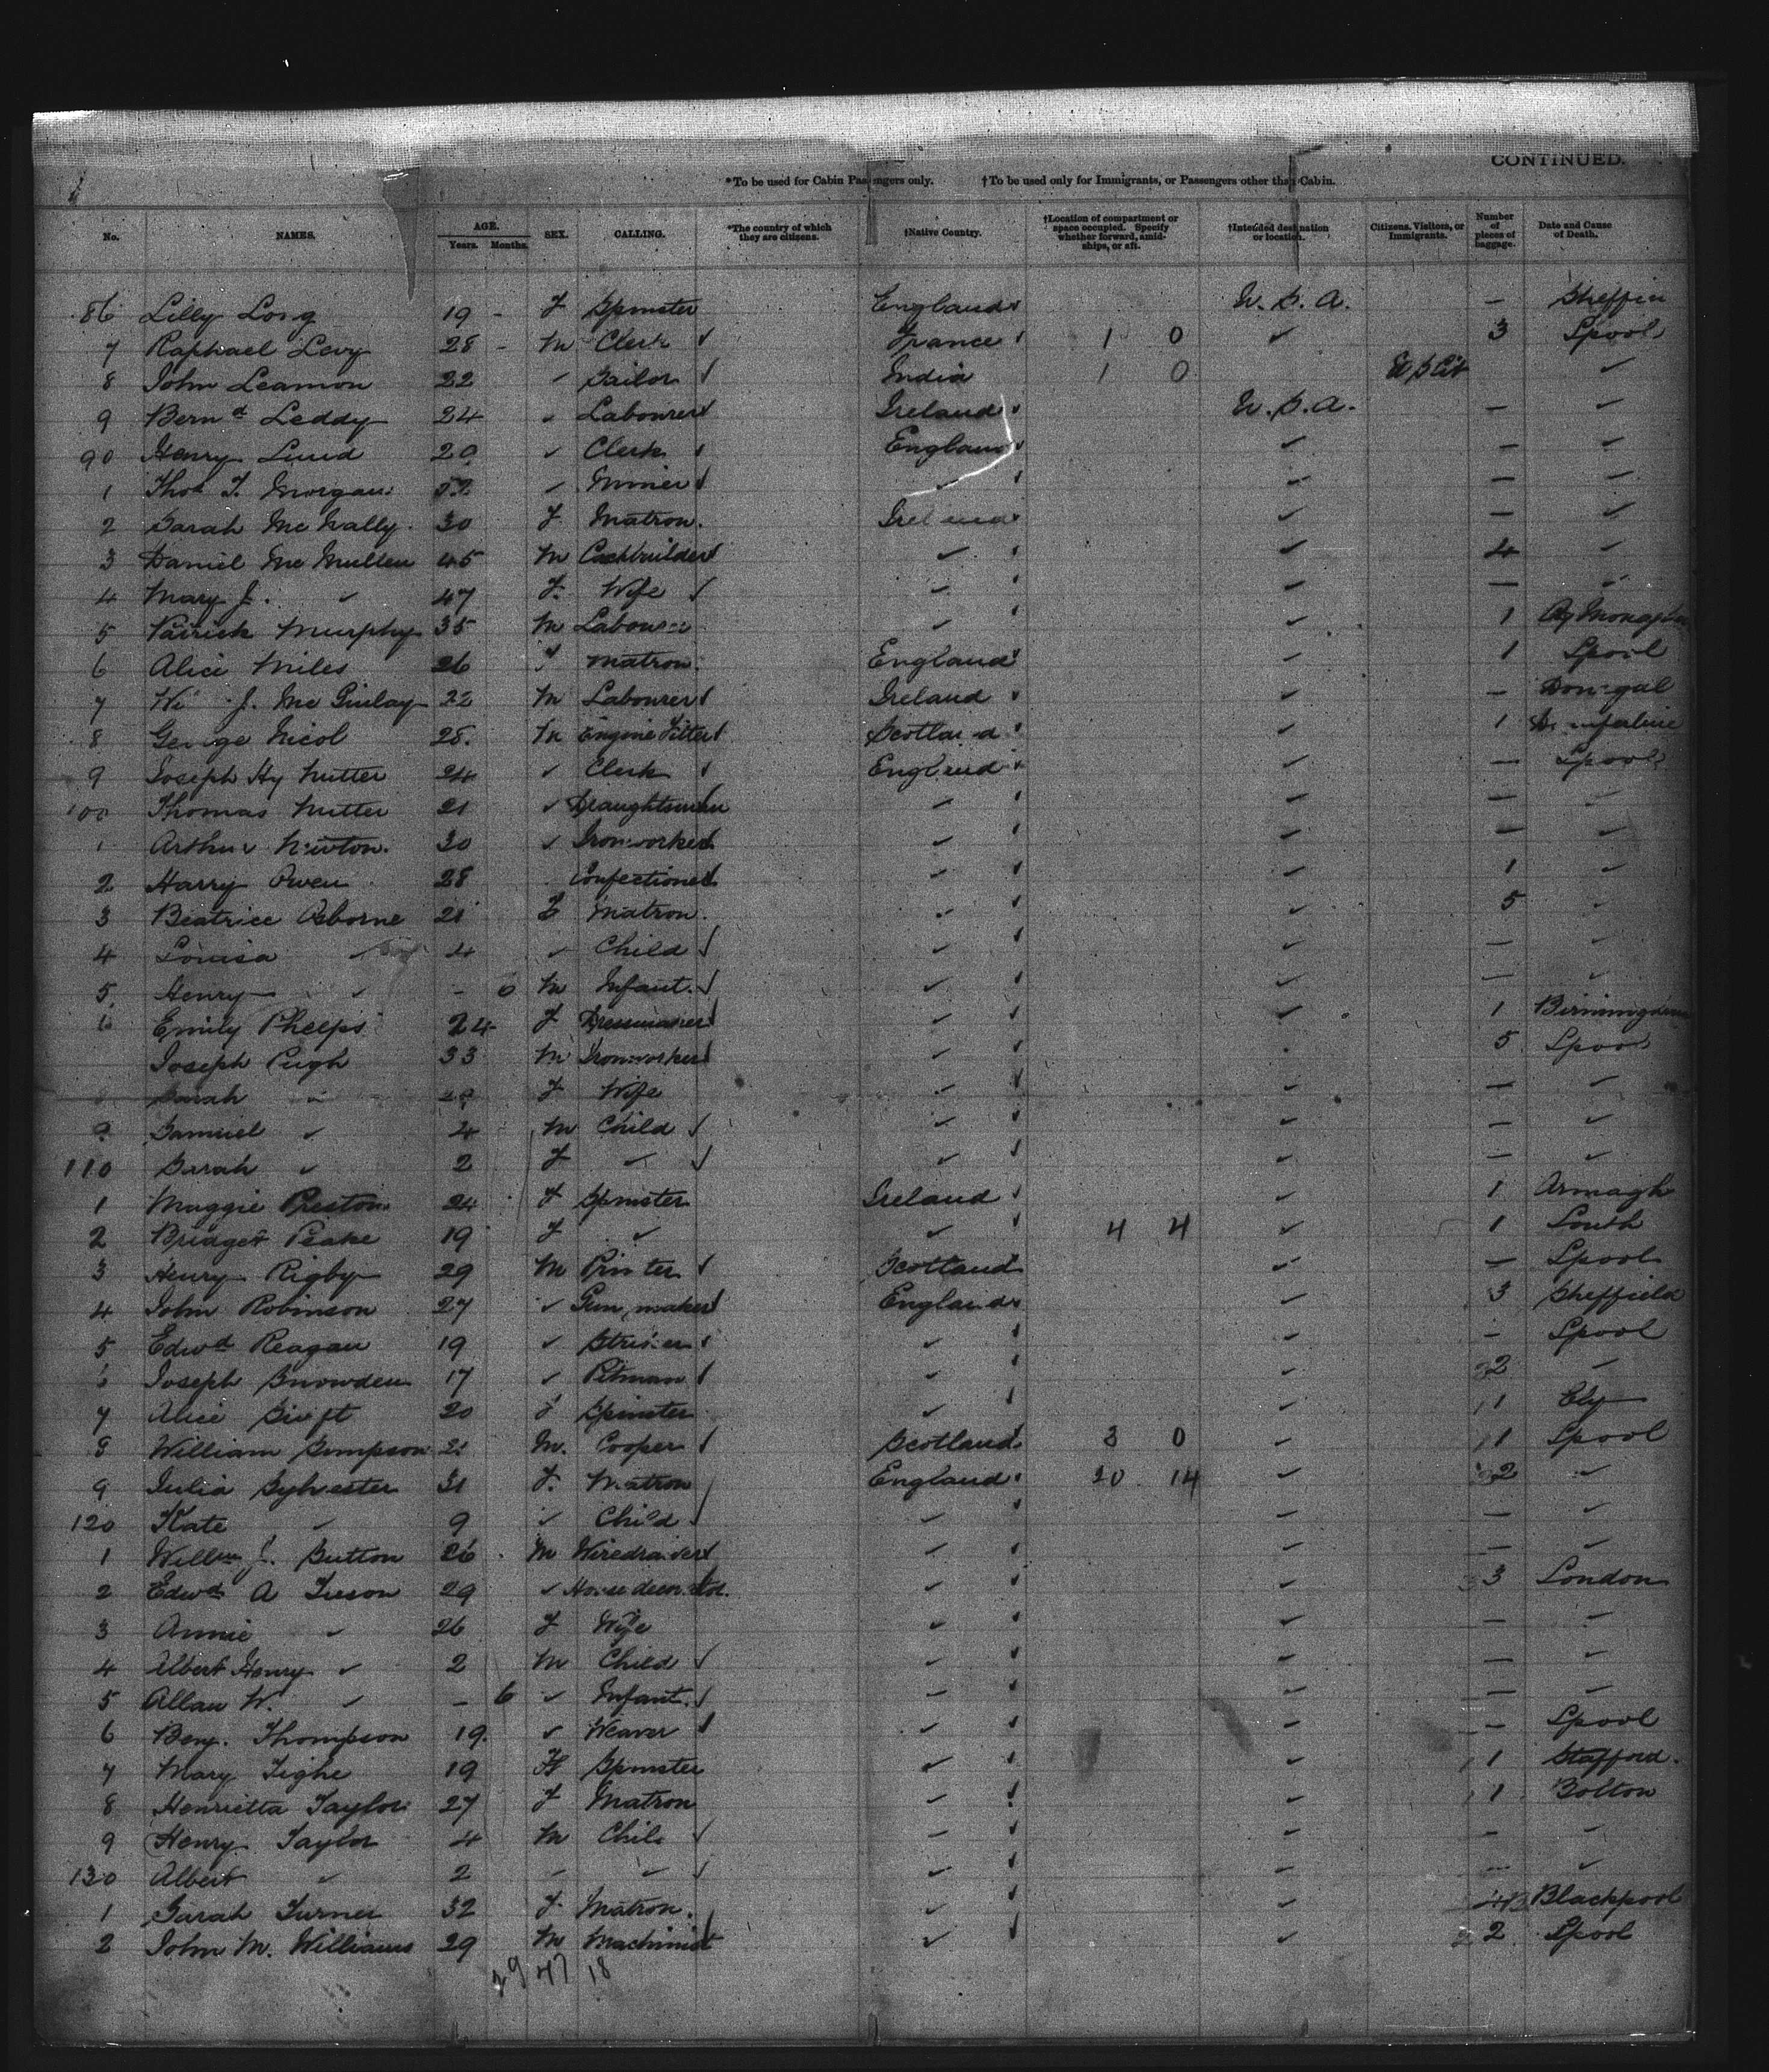 CONTINUED.
*To be used for Cabin Passengers only. †To be used only for Immigrants, or Passengers other than Cabin.
No. NAMES. AGE. Years. Months. SEX. CALLING. *The country of which they are citizens. †Native Country. †Location of compartment or space occupied. Specify whether forward, amidships, or aft. †Intended destination or location. Citizens, Visitors, or Immigrants. Number of pieces of baggage. Date and Cause of Death.
86 Lilly Long 19 - F Spinster England U.S.A. —
7 Raphael Levy 28 - M Clerk France 1 0 ✓ 3 Lpool
8 John Leamon 22 ✓ Sailor India 1 0 U S Cit ✓
9 Bernd Leddy 24 ✓ Labourer Ireland U.S.A. — ✓
90 Henry Lund 20 ✓ Clerk England ✓ — ✓
1 Thos T. Morgan ✓ Miner ✓ ✓ — ✓
2 Sarah McNally 30 F Matron Ireland ✓ — ✓
3 Daniel McMullen 45 M Coachbuilder ✓ ✓ 4 ✓
4 Mary J. ✓ 47 F Wife ✓ ✓ — ✓
5 Patrick Murphy 35 M Labourer ✓ ✓ 1
6 Alice Miles 26 F Matron England ✓ 1 Lpool
7 J. McGinlay 22 M Labourer Ireland ✓ — Donegal
8 George Nicol 25 M Engine Fitter Scotland ✓ 1
9 Joseph Hy Nutter 24 ✓ Clerk England ✓ — Lpool
100 Thomas Nutter 21 ✓ Draughtsman ✓ ✓ — ✓
1 Arthur Newton 30 ✓ Ironworker ✓ ✓ — ✓
2 Harry Owen 28 Confectioner ✓ ✓ 1 ✓
3 Beatrice Osborne 21 F Matron ✓ ✓ 5 ✓
4 Louisa ✓ 4 ✓ Child ✓ ✓ — ✓
5 Henry ✓ - 6 M Infant ✓ ✓ — ✓
6 Emily Phelps 24 F Dressmaker ✓ ✓ 1 Birmingham
Joseph Pugh 33 M Ironworker ✓ 5 Lpool
Sarah ✓ F Wife ✓ ✓ — ✓
9 Samuel ✓ 4 M Child ✓ ✓ — ✓
110 Sarah ✓ 2 F ✓ ✓ ✓ — ✓
1 Maggie Preston 24 F Spinster Ireland ✓ 1 Armagh
2 Bridget Peake 19 F ✓ ✓ 4 4 ✓ 1 Louth
3 Henry Rigby 29 M Printer Scotland ✓ — Lpool
4 John Robinson 27 ✓ Gun maker England ✓ 3 Sheffield
5 Edwd Reagan 19 ✓ Striker ✓ ✓ — Lpool
6 Joseph Snowden 17 ✓ Pitman ✓ ✓ 2 ✓
7 Alice Swift 20 F Spinster ✓ ✓ 1 Ely
8 William Simpson M. Cooper Scotland 3 0 ✓ 1 Lpool
9 Julia Sylvester 31 F. Matron England 20 14 ✓ 2 ✓
120 Kate ✓ 9 ✓ Child ✓ ✓ — ✓
1 Willm J. Sutton 26 M Wiredrawer ✓ ✓ — ✓
2 Edwd A Tuson 29 ✓ House decorator ✓ ✓ 3 London
3 Annie ✓ 26 F Wife ✓ ✓ — ✓
4 Albert Henry ✓ 2 M Child ✓ ✓ — ✓
5 Allan W. ✓ - 6 ✓ Infant ✓ ✓ — ✓
6 Benj. Thompson 19 ✓ Weaver ✓ ✓ — Lpool
7 Mary Tighe 19 F Spinster ✓ ✓ 1 Stafford.
8 Henrietta Taylor 27 F Matron ✓ ✓ 1 Bolton
9 Henry Taylor 4 M Child ✓ ✓ — ✓
130 Albert ✓ 2 - ✓ ✓ ✓ — ✓
1 Sarah Turner 32 F Matron. ✓ ✓ Blackpool
2 John M. Williams 29 M Machinist ✓ ✓ 2 Lpool
29 47 18